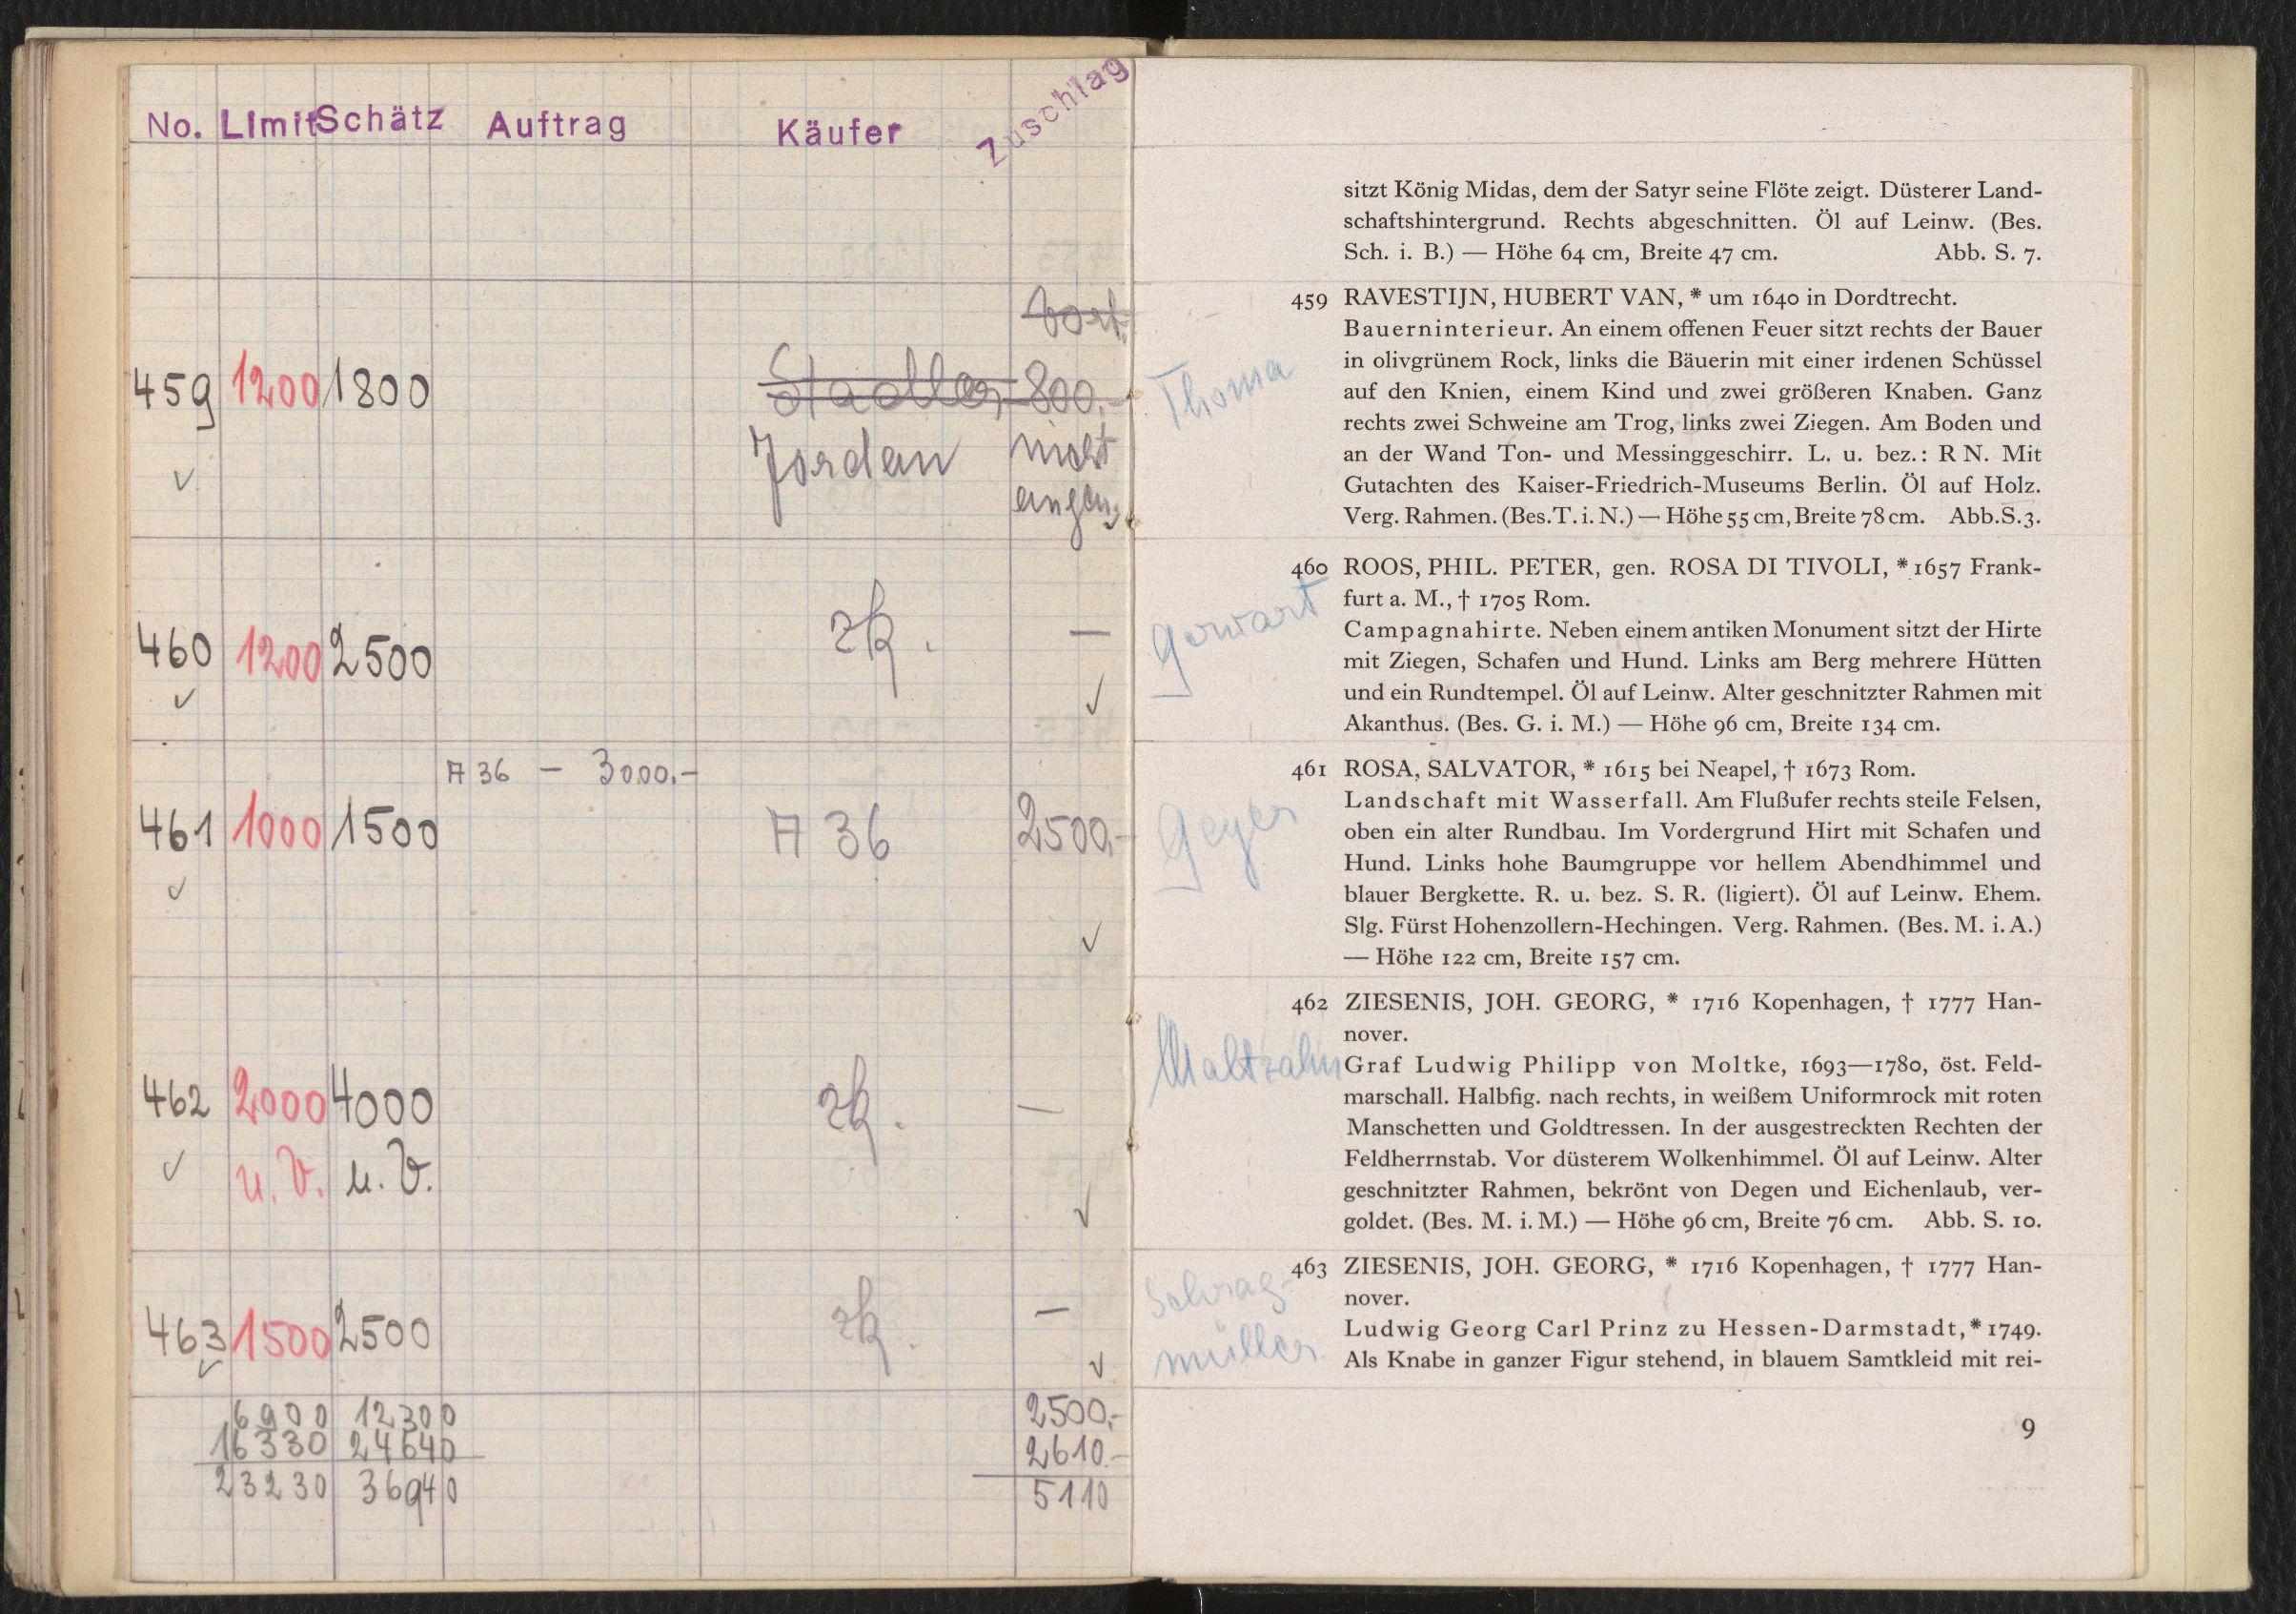 No. Limit Schätz Auftrag Käufer Zuschlag
459 1200 1800 Stadler 800.-
Jordan nicht
angen.
460 1200 2500 zk. —
A 36 — 3000.-
461 1000 1500 A 36 2500.-
462 2000 4000 zk. —
u. V. u. V.
463 1500 2500 zk. —
6900 12300 2500.-
16330 24640 2610.-
23230 36940 5110
sitzt König Midas, dem der Satyr seine Flöte zeigt. Düsterer Land-
schaftshintergrund. Rechts abgeschnitten. Öl auf Leinw. (Bes.
Sch. i. B.) — Höhe 64 cm, Breite 47 cm. Abb. S. 7.
459 RAVESTIJN, HUBERT VAN, * um 1640 in Dordtrecht.
Bauerninterieur. An einem offenen Feuer sitzt rechts der Bauer
Thoma
in olivgrünem Rock, links die Bäuerin mit einer irdenen Schüssel
auf den Knien, einem Kind und zwei größeren Knaben. Ganz
rechts zwei Schweine am Trog, links zwei Ziegen. Am Boden und
an der Wand Ton- und Messinggeschirr. L. u. bez.: R N. Mit
Gutachten des Kaiser-Friedrich-Museums Berlin. Öl auf Holz.
Verg. Rahmen. (Bes. T. i. N.) — Höhe 55 cm, Breite 78 cm. Abb. S. 3.
460 ROOS, PHIL. PETER, gen. ROSA DI TIVOLI, * 1657 Frank-
furt a. M., † 1705 Rom.
Campagnahirte. Neben einem antiken Monument sitzt der Hirte
mit Ziegen, Schafen und Hund. Links am Berg mehrere Hütten
und ein Rundtempel. Öl auf Leinw. Alter geschnitzter Rahmen mit
Akanthus. (Bes. G. i. M.) — Höhe 96 cm, Breite 134 cm.
461 ROSA, SALVATOR, * 1615 bei Neapel, † 1673 Rom.
Landschaft mit Wasserfall. Am Flußufer rechts steile Felsen,
Geyer
oben ein alter Rundbau. Im Vordergrund Hirt mit Schafen und
Hund. Links hohe Baumgruppe vor hellem Abendhimmel und
blauer Bergkette. R. u. bez. S. R. (ligiert). Öl auf Leinw. Ehem.
Slg. Fürst Hohenzollern-Hechingen. Verg. Rahmen. (Bes. M. i. A.)
— Höhe 122 cm, Breite 157 cm.
462 ZIESENIS, JOH. GEORG, * 1716 Kopenhagen, † 1777 Han-
nover.
Maltzahn
Graf Ludwig Philipp von Moltke, 1693—1780, öst. Feld-
marschall. Halbfig. nach rechts, in weißem Uniformrock mit roten
Manschetten und Goldtressen. In der ausgestreckten Rechten der
Feldherrnstab. Vor düsterem Wolkenhimmel. Öl auf Leinw. Alter
geschnitzter Rahmen, bekrönt von Degen und Eichenlaub, ver-
goldet. (Bes. M. i. M.) — Höhe 96 cm, Breite 76 cm. Abb. S. 10.
463 ZIESENIS, JOH. GEORG, * 1716 Kopenhagen, † 1777 Han-
nover.
Schrag-
müller
Ludwig Georg Carl Prinz zu Hessen-Darmstadt, * 1749.
Als Knabe in ganzer Figur stehend, in blauem Samtkleid mit rei-
9